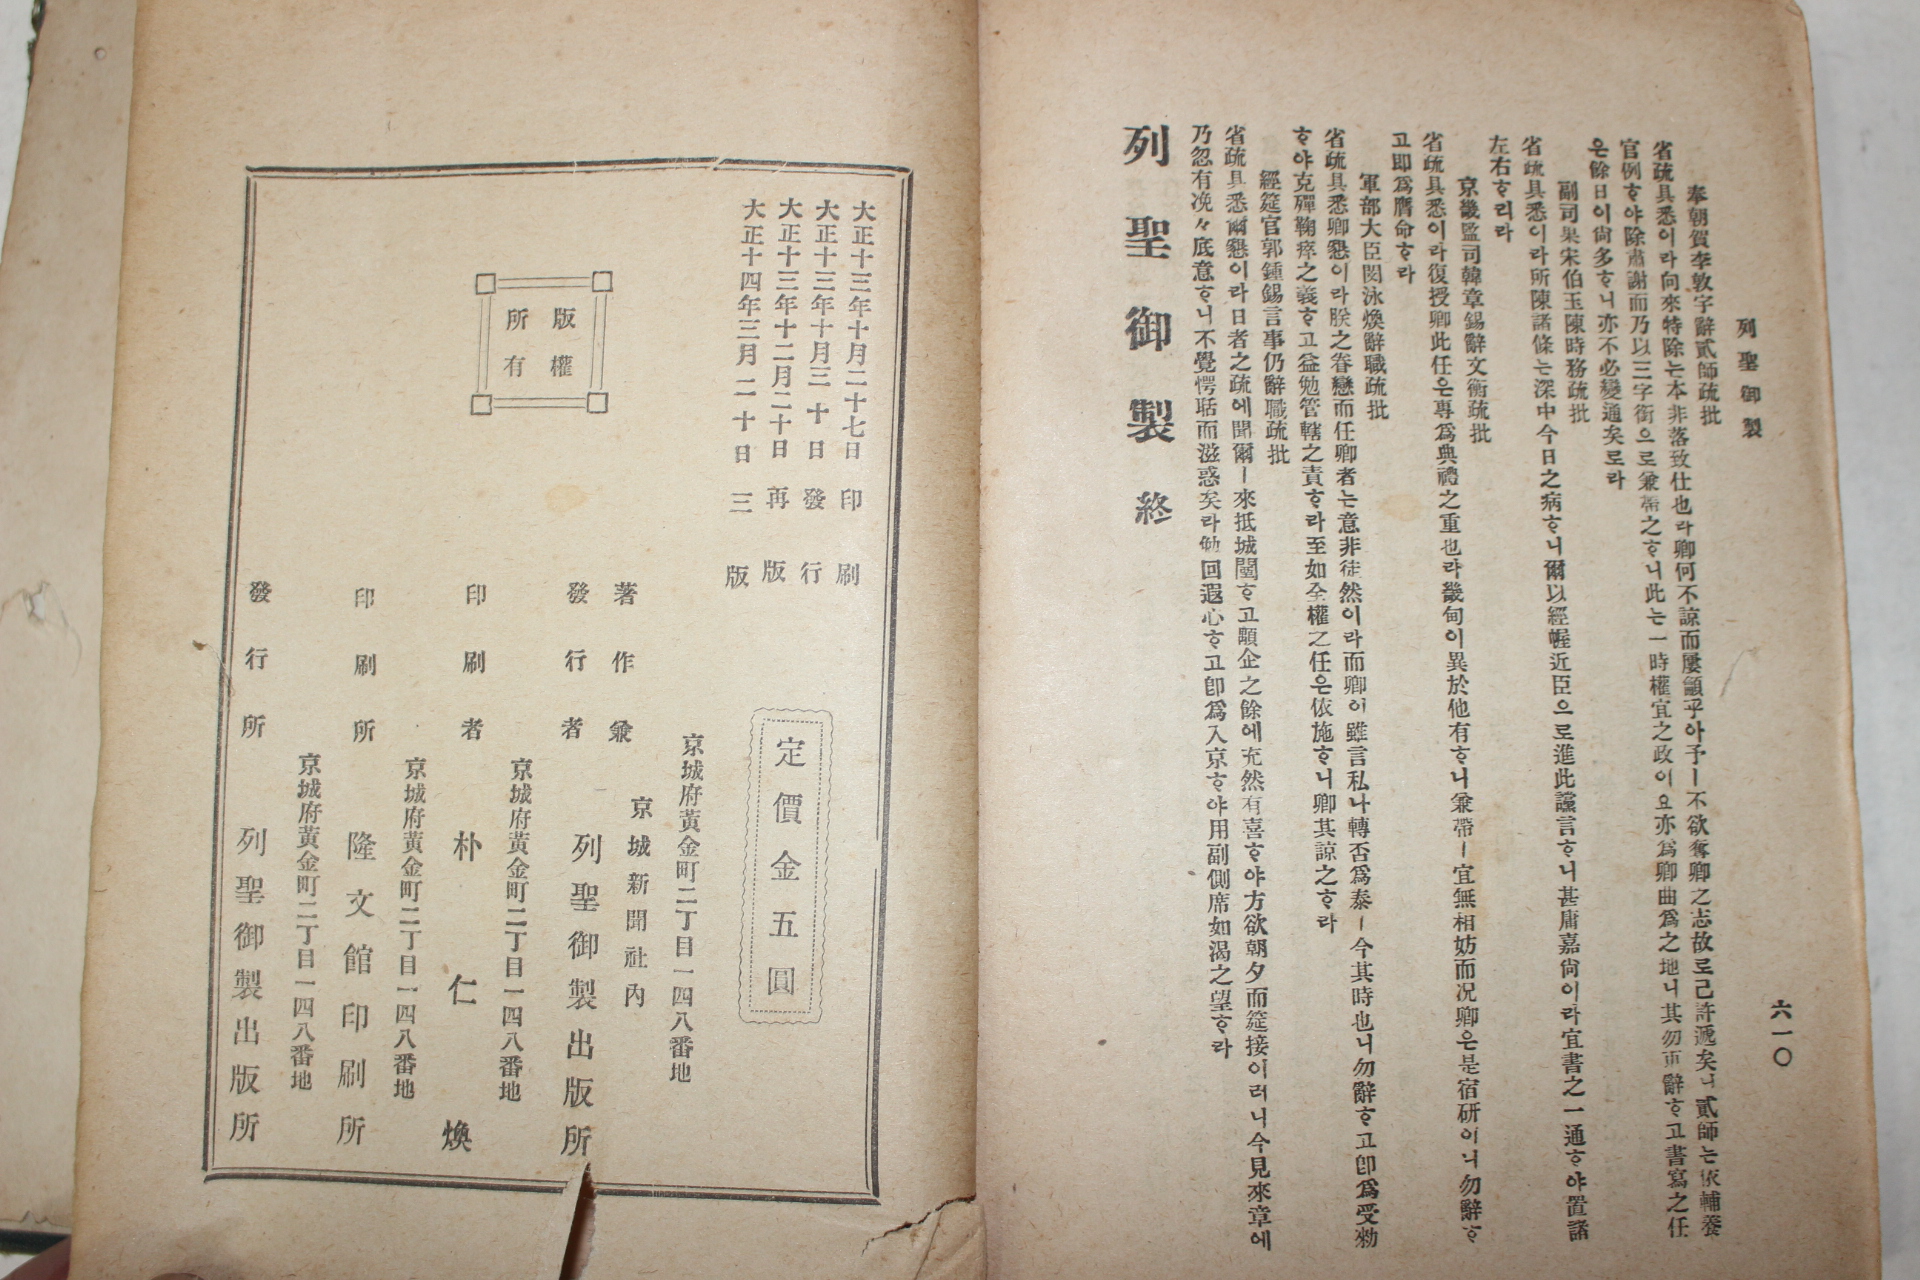 列聖御製
六一〇
奉朝賀李敦宇辭貳師疏批
省疏具悉이라向來特除는本非落致仕也라卿何不諒而屢籲乎아予ㅣ不欲奪卿之志故로已許遞矣니貳師는依輔養
官例ᄒᆞ야除肅謝而乃以三字銜으로兼帶之ᄒᆞ니此는一時權宜之政이오亦爲卿曲爲之地니其勿更辭ᄒᆞ고書寫之任
은餘日이尙多ᄒᆞ니亦不必變通矣로라
副司果宋伯玉陳時務疏批
省疏具悉이라所陳諸條는深中今日之病ᄒᆞ니爾以經幄近臣으로進此讜言ᄒᆞ니甚庸嘉尙이라宜書之一通ᄒᆞ야置諸
左右ᄒᆞ리라
京畿監司韓章錫辭文衡疏批
省疏具悉이라復授卿此任은專爲典禮之重也라畿甸이異於他有ᄒᆞ니兼帶ㅣ宜無相妨而况卿은是宿硏이니勿辭ᄒᆞ
고即爲膺命ᄒᆞ라
軍部大臣閔泳煥辭職疏批
省疏具悉卿懇이라朕之眷戀而任卿者는意非徒然이라而卿이雖言私나轉否爲泰ㅣ今其時也니勿辭ᄒᆞ고卽爲受勅
ᄒᆞ야克殫鞠瘁之義ᄒᆞ고益勉管轄之責ᄒᆞ라至如全權之任은依施ᄒᆞ니卿其諒之ᄒᆞ라
經筵官郭鍾錫言事仍辭職疏批
省疏具悉爾懇이라日者之疏에聞爾ㅣ來抵城闉ᄒᆞ고顒企之餘에充然有喜ᄒᆞ야方欲朝夕而筵接이러니今見來章에
乃忽有浼々底意ᄒᆞ니不覺愕聒而滋惑矣라勉回遐心ᄒᆞ고卽爲入京ᄒᆞ야用副側席如渴之望ᄒᆞ라
列聖御製 終
大正十三年十月二十七日 印刷
大正十三年十月三十日 發行
大正十三年十二月二十日 再版
大正十四年三月二十日 三版
版權
所有
定價金五圓
京城府黃金町二丁目一四八番地
京城新聞社內
著作兼
發行者 列聖御製出版所
京城府黃金町二丁目一四八番地
印刷者 朴仁煥
京城府黃金町二丁目一四八番地
印刷所 隆文館印刷所
京城府黃金町二丁目一四八番地
發行所 列聖御製出版所